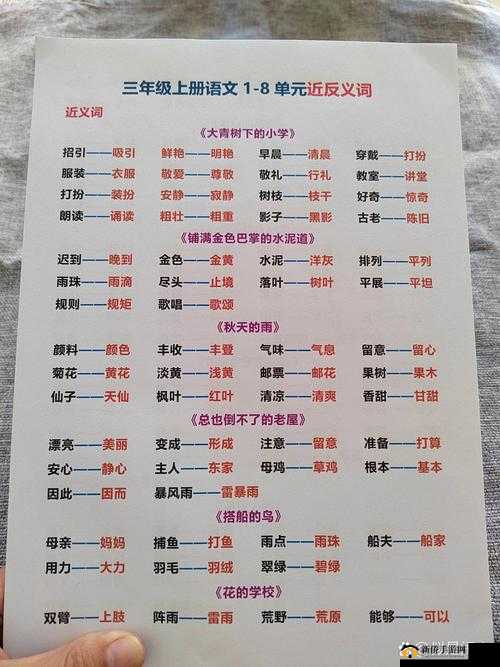 三年级上册语文1-8单元近反义词
近义词
《大青树下的小学》
招引——吸引 鲜艳——明艳 早晨——清晨 穿戴——打扮
服装——衣服 敬爱——尊敬 敬礼——行礼 教室——讲堂
打扮——装扮 安静——寂静 树枝——枝干 好奇——惊奇
朗读——诵读 粗壮——粗重 影子——黑影 古老——陈旧
《铺满金色巴掌的水泥道》
迟到——晚到 金色——金黄 水泥——洋灰 排列——平列
雨珠——雨滴 尽头——止境 落叶——树叶 平展——平坦
规则——规矩 歌唱——歌颂
《秋天的雨》
颜料——颜色 丰收——丰登 气味——气息 留意——留心
菊花——黄花 淡黄——浅黄 邮票——邮花 果树——果木
仙子——天仙 枫叶——红叶 清凉——清爽 香甜——甘甜
《总也倒不了的老屋》
漂亮——美丽 变成——形成 注意——留意 准备——打算
安心——静心 主人——东家 母鸡——草鸡 根本——基本
因此——因而 暴风雨——雷暴雨
《搭船的鸟》
母亲——妈妈 捕鱼——打鱼 雨点——雨珠 船夫——船家
用力——大力 羽毛——羽绒 翠绿——碧绿
《花的学校》
双臂——上肢 阵雨——雷雨 荒野——荒原 能够——可以
新侨手游网